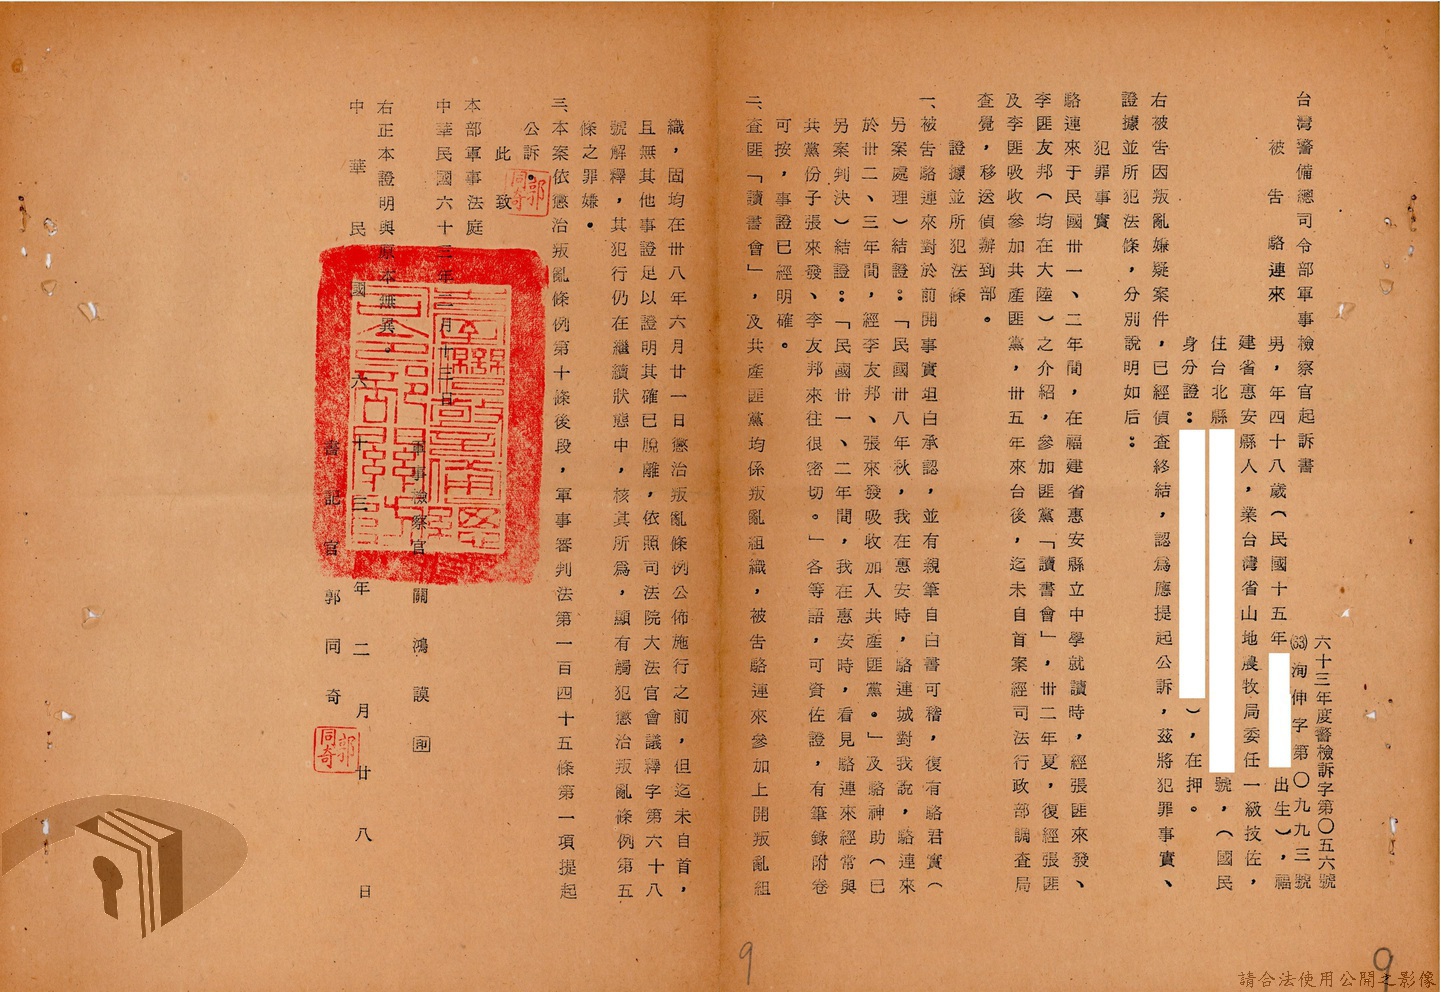 六十三年度警檢訴字第〇五六號
(63)洵伸字第〇九九三號
台灣警備總司令部軍事檢察官起訴書
被告 駱連來 男，年四十八歲（民國十五年 出生），福
建省惠安縣人，業台灣省山地農牧局委任一級技佐，
住台北縣 號，（國民
身分證： ），在押。
右被告因叛亂嫌疑案件，已經偵查終結，認為應提起公訴，茲將犯罪事實、
證據並所犯法條，分別說明如后：
犯罪事實
駱連來于民國卅一、二年間，在福建省惠安縣立中學就讀時，經張匪來發、
李匪友邦（均在大陸）之介紹，參加匪黨「讀書會」，卅二年夏，復經張匪
及李匪吸收參加共產匪黨，卅五年來台後，迄未自首案經司法行政部調查局
查覺，移送偵辦到部。
證據並所犯法條
一、被告駱連來對於前開事實坦白承認，並有親筆自白書可稽，復有駱君實（
另案處理）結證：「民國卅八年秋，我在惠安時，駱連城對我說，駱連來
於卅二、三年間，經李友邦、張來發吸收加入共產匪黨。」及駱神助（已
另案判決）結證：「民國卅一、二年間，我在惠安時，看見駱連來經常與
共黨份子張來發、李友邦來往很密切。」各等語，可資佐證，有筆錄附卷
可按，事證已經明確。
二、查匪「讀書會」，及共產匪黨均係叛亂組織，被告駱連來參加上開叛亂組
織，固均在卅八年六月廿一日懲治叛亂條例公佈施行之前，但迄未自首，
且無其他事證足以證明其確已脫離，依照司法院大法官會議釋字第六十八
號解釋，其犯行仍在繼續狀態中，核其所為，顯有觸犯懲治叛亂條例第五
條之罪嫌。
三、本案依懲治叛亂條例第十條後段，軍事審判法第一百四十五條第一項提起
公訴。
此致
郭同奇
本部軍事法庭
中華民國六十三年二月廿三日
軍事檢察官 關鴻謨 印
右正本證明與原本無異。
中華民國六十三年二月廿八日
書記官 郭同奇
郭同奇
9
9
請合法使用公開之影像